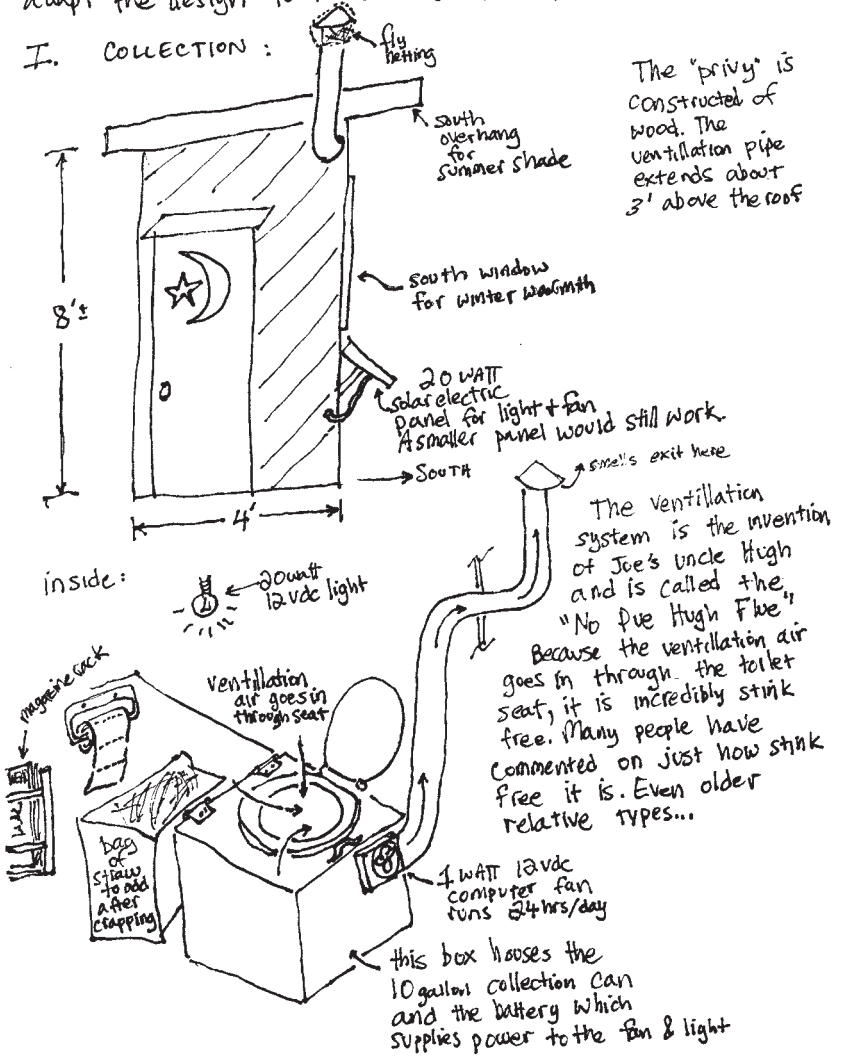 adapt the design to
I. COLLECTION:
fly
netting
The "privy" is
constructed of
wood. The
ventillation pipe
extends about
3' above the roof
south
overhang
for
summer shade
8'±
south window
for winter warmth
20 WATT
solar electric
panel for light + fan
A smaller panel would still work.
SOUTH
4'
smells exit here
The ventillation
system is the invention
of Joe's uncle Hugh
and is called the
"No Pue Hugh Flue"
Because the ventillation air
goes in through the toilet
seat, it is incredibly stink
free. Many people have
commented on just how stink
free it is. Even older
relative types...
inside:
20 watt
12 vdc light
magazine rack
ventillation
air goes in
through seat
bag
of
straw
to add
after
crapping
1 WATT 12 vdc
computer fan
runs 24 hrs/day
this box houses the
10 gallon collection can
and the battery which
supplies power to the fan & light